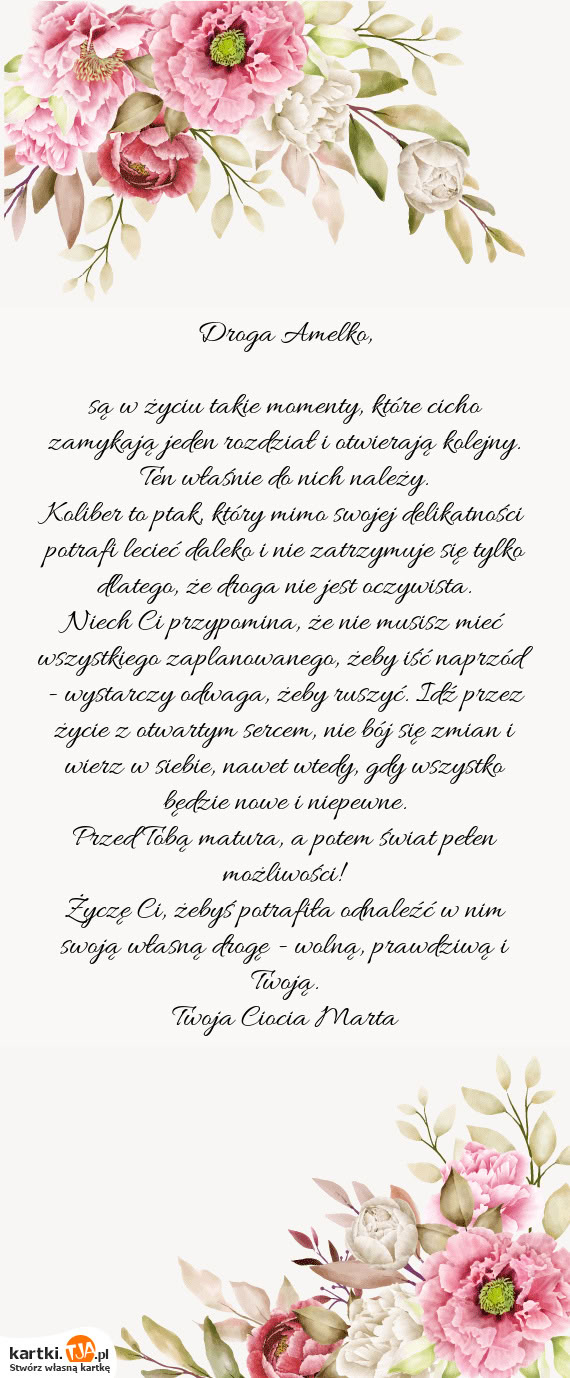 Droga Amelko,
są w życiu takie momenty, które cicho
zamykają jeden rozdział i otwierają kolejny.
Ten właśnie do nich należy.
Koliber to ptak, który mimo swojej delikatności
potrafi lecieć daleko i nie zatrzymuje się tylko
dlatego, że droga nie jest oczywista.
Niech Ci przypomina, że nie musisz mieć
wszystkiego zaplanowanego, żeby iść naprzód
- wystarczy odwaga, żeby ruszyć. Idź przez
życie z otwartym sercem, nie bój się zmian i
wierz w siebie, nawet wtedy, gdy wszystko
będzie nowe i niepewne.
Przed Tobą matura, a potem świat pełen
możliwości!
Życzę Ci, żebyś potrafiła odnaleźć w nim
swoją własną drogę - wolną, prawdziwą i
Twoją.
Twoja Ciocia Marta
kartki.TJA.pl
Stwórz własną kartkę